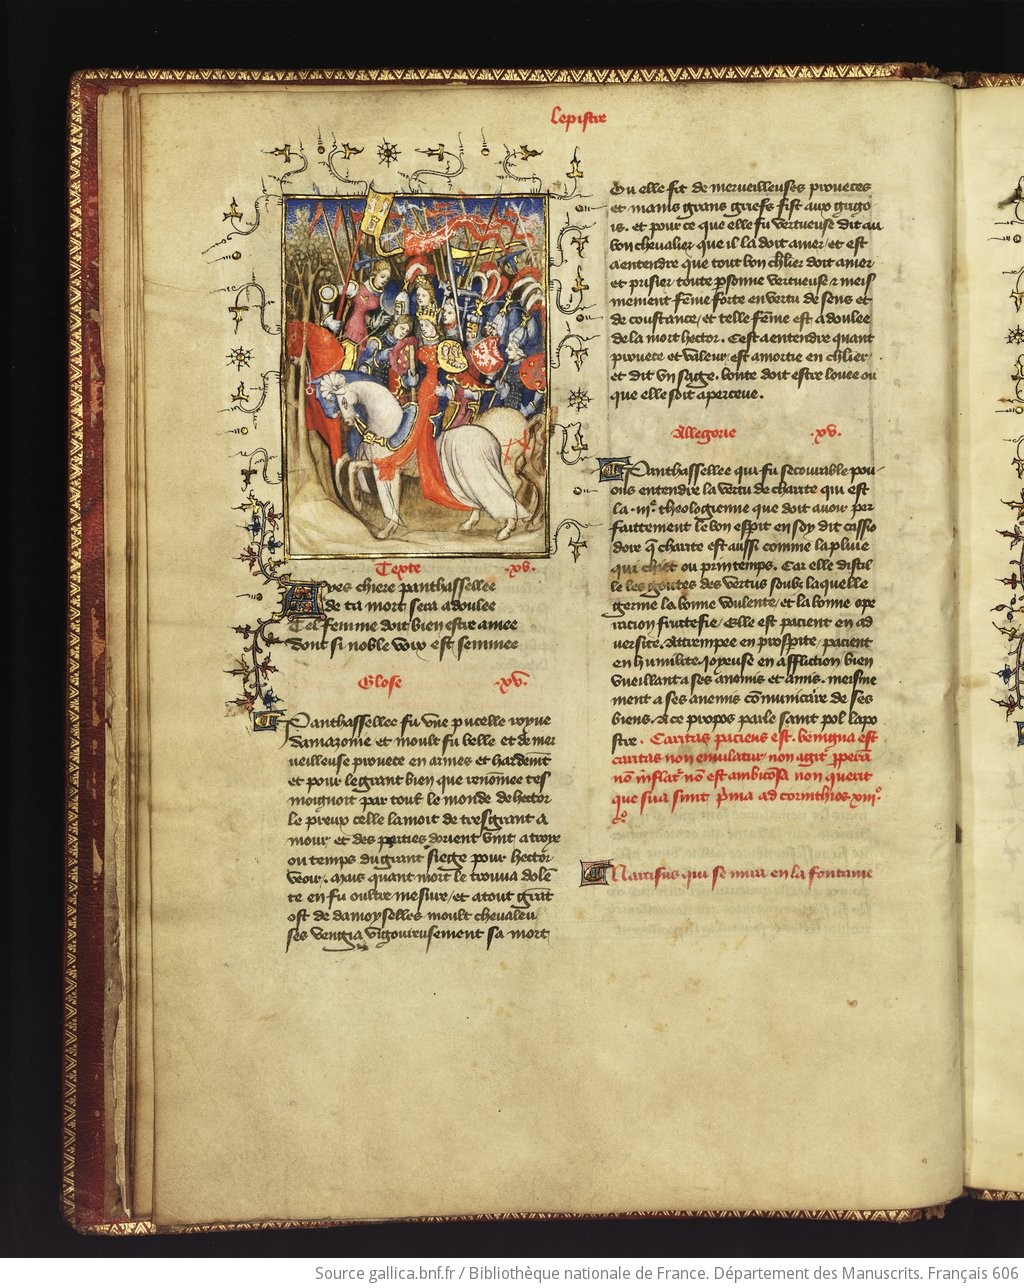 Lepistre
Texte .xv.
Ayes chiere panthassellee
de ta mort sera adoulee
Tel femme doit bien estre amee
dont si noble voix est semmee
Glose .xv.
Panthassellee fu vne pucelle royne
damazonie et moult fu belle et de mer
ueilleuse prouece en armes et hardemt
et pour le grant bien que renomee tes
moignoit par tout le monde de hector
le preux celle lamoit de tresgrant a
mour et des parties dorient vint a troye
ou temps du grant siege pour hector
veoir. mais quant mort le trouua dolē
te en fu oultre mesure / et a tout grāt
ost de damoyselles moult cheualeu
ses venga vigoureusement sa mort
Ou elle fit de merueilleuses proueces
et mains grans griefs fist aux grigo
is. et pour ce que elle fu vertueuse dit au
bon cheualier que il la doit amer / et est
a entendre que tout bon chlier doit amer
et prisier toute psonne vertueuse & meis
mement fēme forte en vertu de sens et
de constance / et telle fēme est adoulee
de la mort hector. Cest a entendre quant
prouece et valeur est amortie en chlier.
et dit vn sage. bonte doit estre louee ou
que elle soit aperceue.
Allegorie .xv.
Panthassellee qui fu secourable pou
ons entendre la vertu de charite qui est
la .iij.e theologienne que doit auoir par
faittement le bon esperit en soy dit cassio
dore q̄ charite est aussi comme la pluie
qui chiet ou printemps. Car elle distil
le les goutes des vertus soubz laquelle
germe la bonne voulente / et la bonne ope
racion fructefie / Elle est pacient en ad
uersite. Attrempee en prosperite / pacient
en humilite Joyeuse en affliction bien
vueillant a ses anemis et amis. meisme
ment a ses anemis cōmunicaire de ses
biens. A ce propos parle saint pol lapo
stre. Caritas paciens est. benigna est
caritas non emulatur non agit pperā
nō inflatr nō est ambiciosa non querit
que sua sunt prima ad corinthios xiii.º
cº
Narcisus qui se mira en la fontaine
Source gallica.bnf.fr / Bibliothèque nationale de France. Département des Manuscrits. Français 606